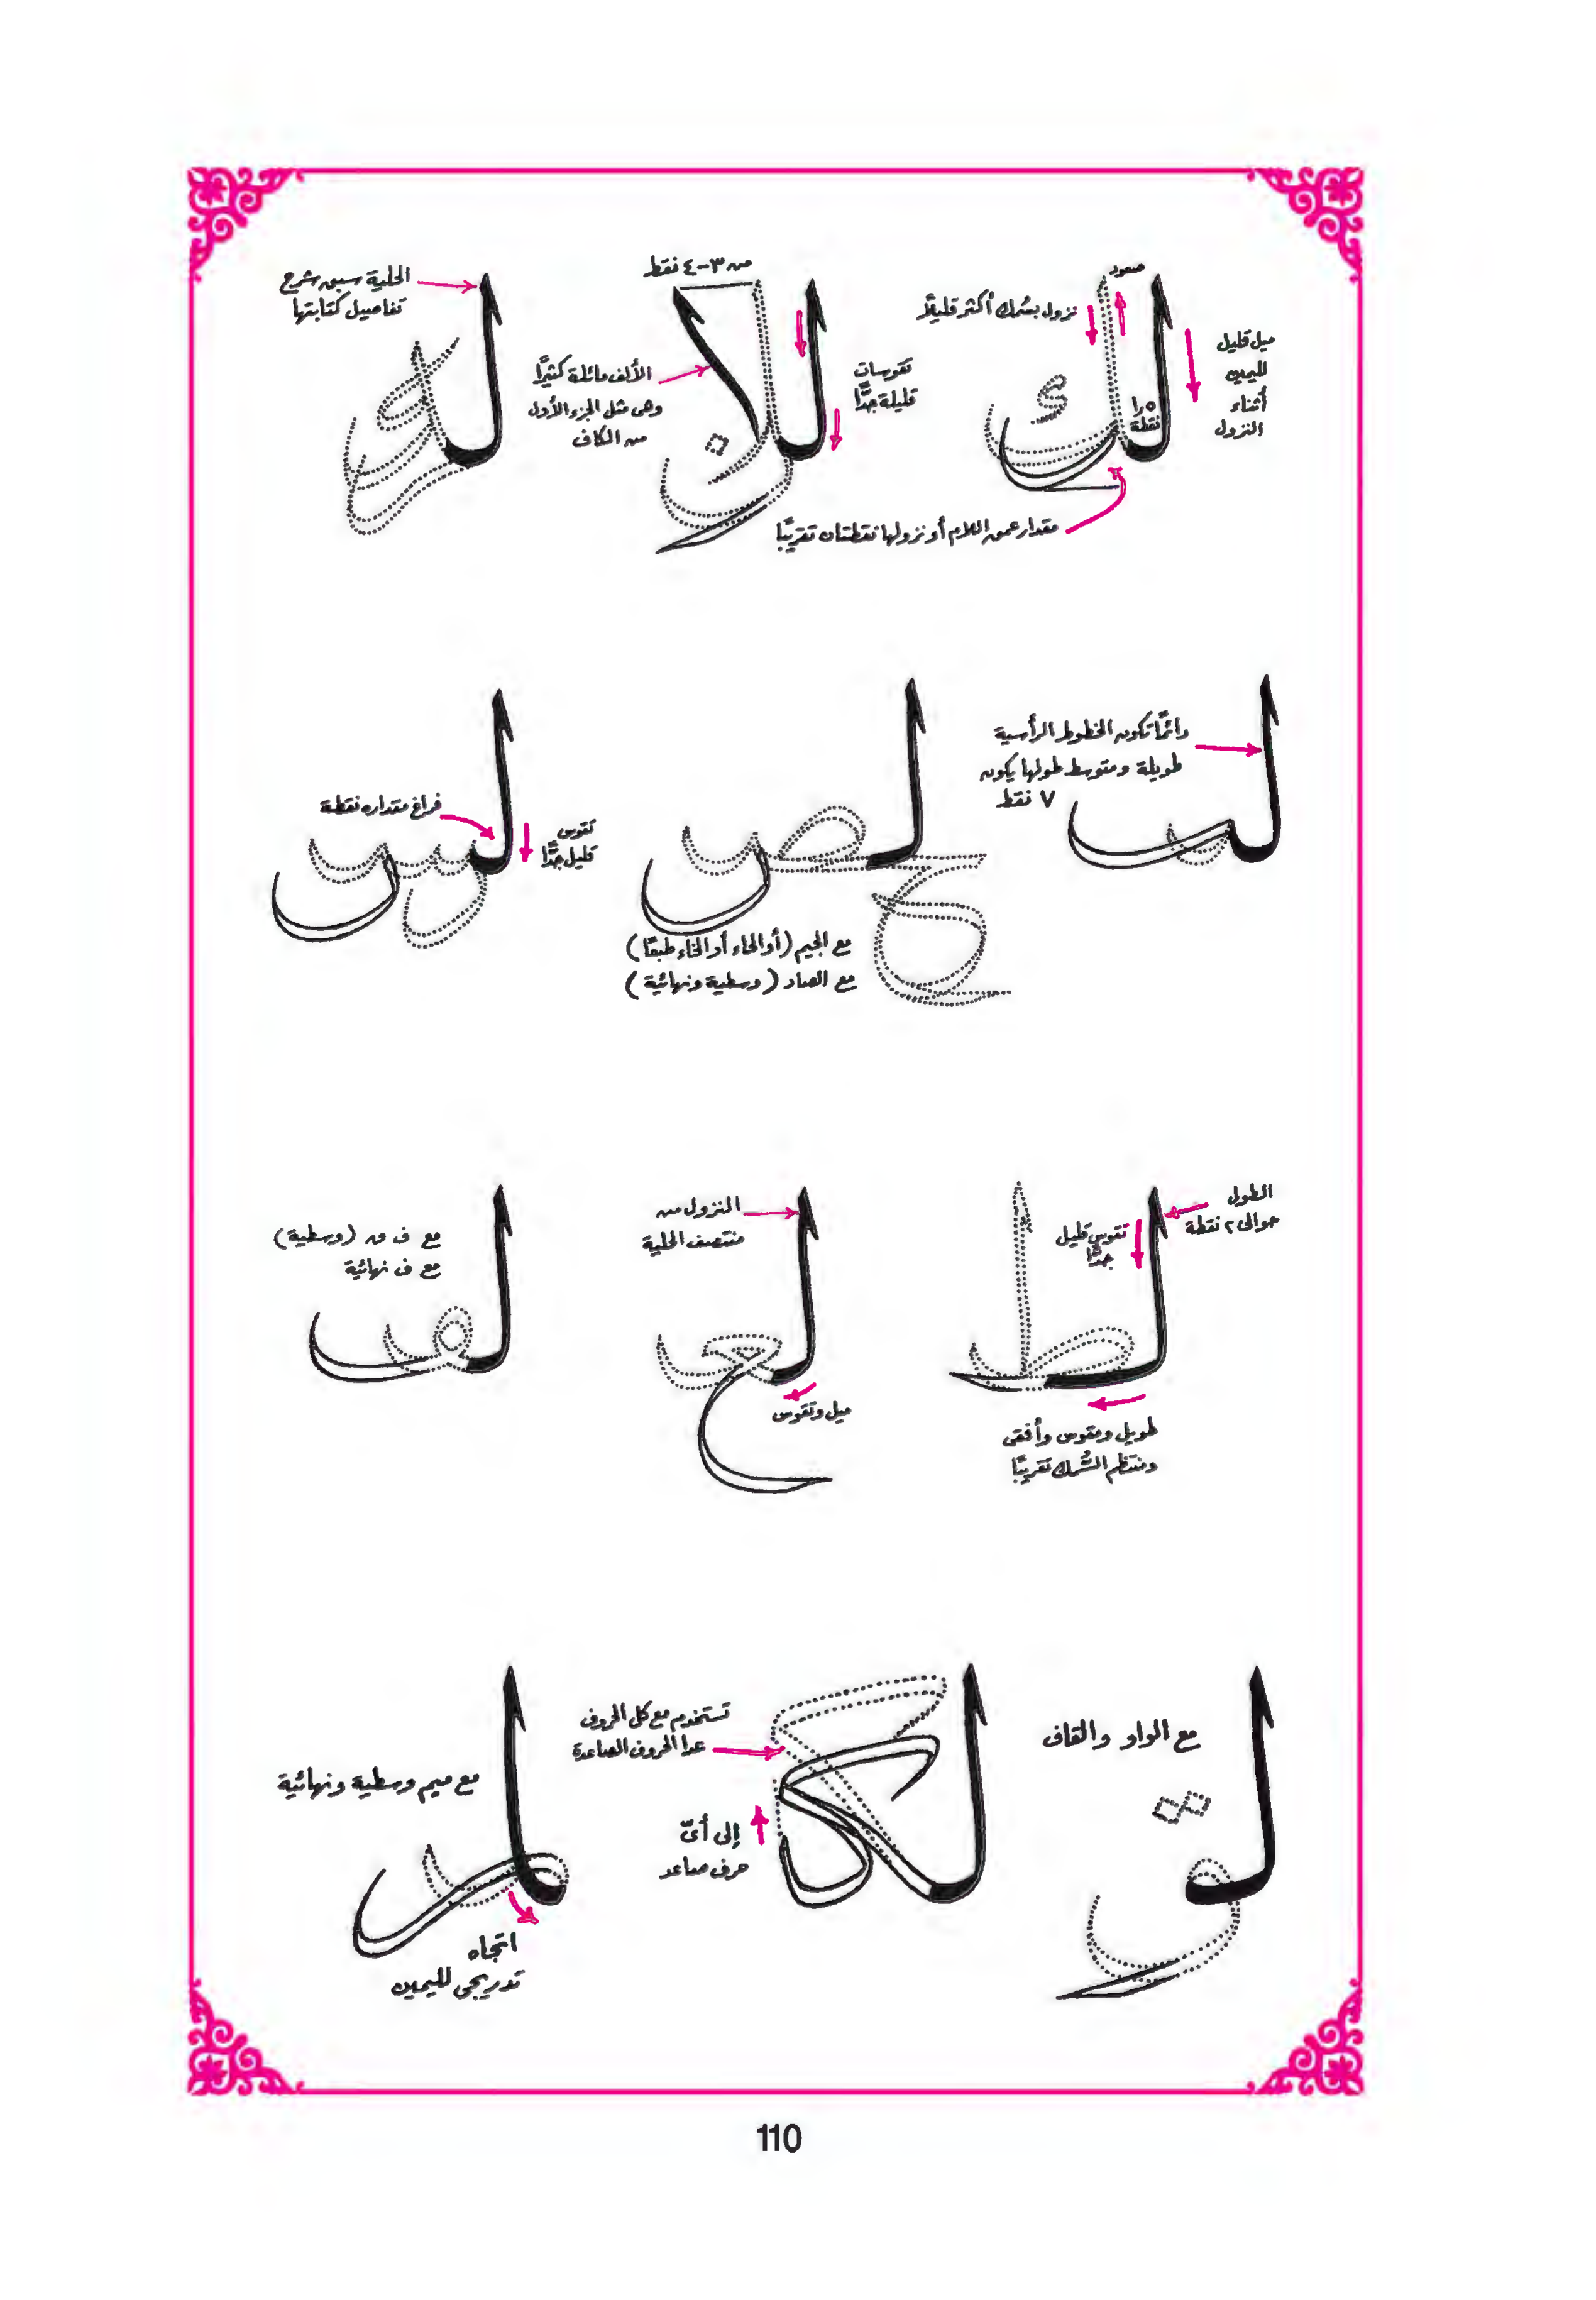 صعود
نزول بسُمك أكثر قليلًا
ميل قليل
لليمين
أثناء
النزول
١٫٥
نقطة
مقدار عمق اللام أو نزولها نقطتان تقريبًا
من ٣-٤ نقط
تقوسات
قليلة جدًّا
الألف مائلة كثيرًا
وهى مثل الجزء الأول
من الكاف
الحلية سبق شرح
تفاصيل كتابتها
دائمًا تكون الخطوط الرأسية
طويلة ومتوسط طولها يكون
٧ نقط
مع الجيم (أو الحاء أو الخاء طبعًا)
مع الصاد (وسطية ونهائية)
فراغ مقداره نقطة
تقوس
قليل جدًّا
الطول
حوالى ٢ نقطة
تقوس قليل
جدًّا
طويل ومقوس وأفقى
ومنتظم السُّمك تقريبًا
النزول من
منتصف الحلية
ميل وتقوس
مع ف ق (وسطية)
مع ف نهائية
مع الواو والقاف
تستخدم مع كل الحروف
عدا الحروف الصاعدة
إلى أىّ
حرف صاعد
مع ميم وسطية ونهائية
اتجاه
تدريجى لليمين
110